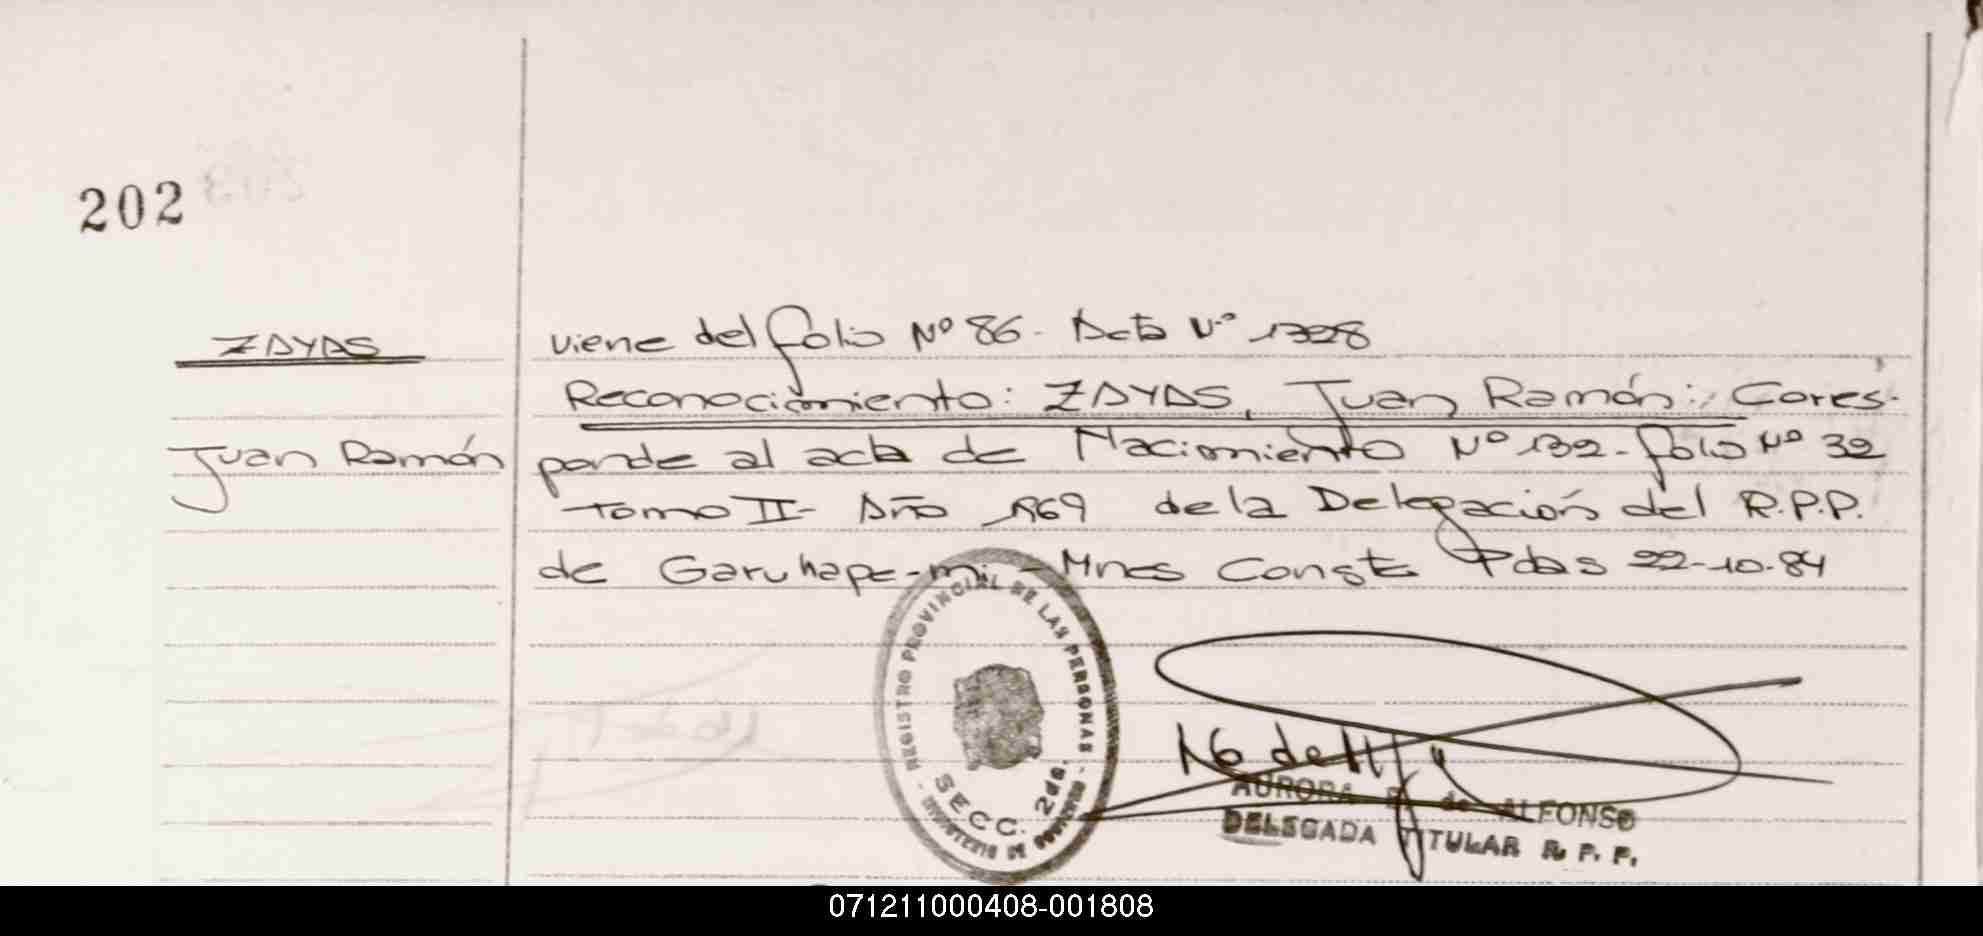 202
ZAYAS
Juan Ramón
viene del folio Nº 86 - Acta Nº 1328
Reconocimiento: ZAYAS, Juan Ramón: Cores-
ponde al acta de Nacimiento Nº 132 - folio Nº 32
Tomo II - Año 1969 de la Delegación del R.P.P.
de Garuhape-mi - Mnes Conste Pdas 22-10-84
REGISTRO PROVINCIAL DE LAS PERSONAS
SECC. 2da.
MINISTERIO DE GOBIERNO
AURORA de ALFONSO
DELEGADA TITULAR R. P. P.
071211000408-001808